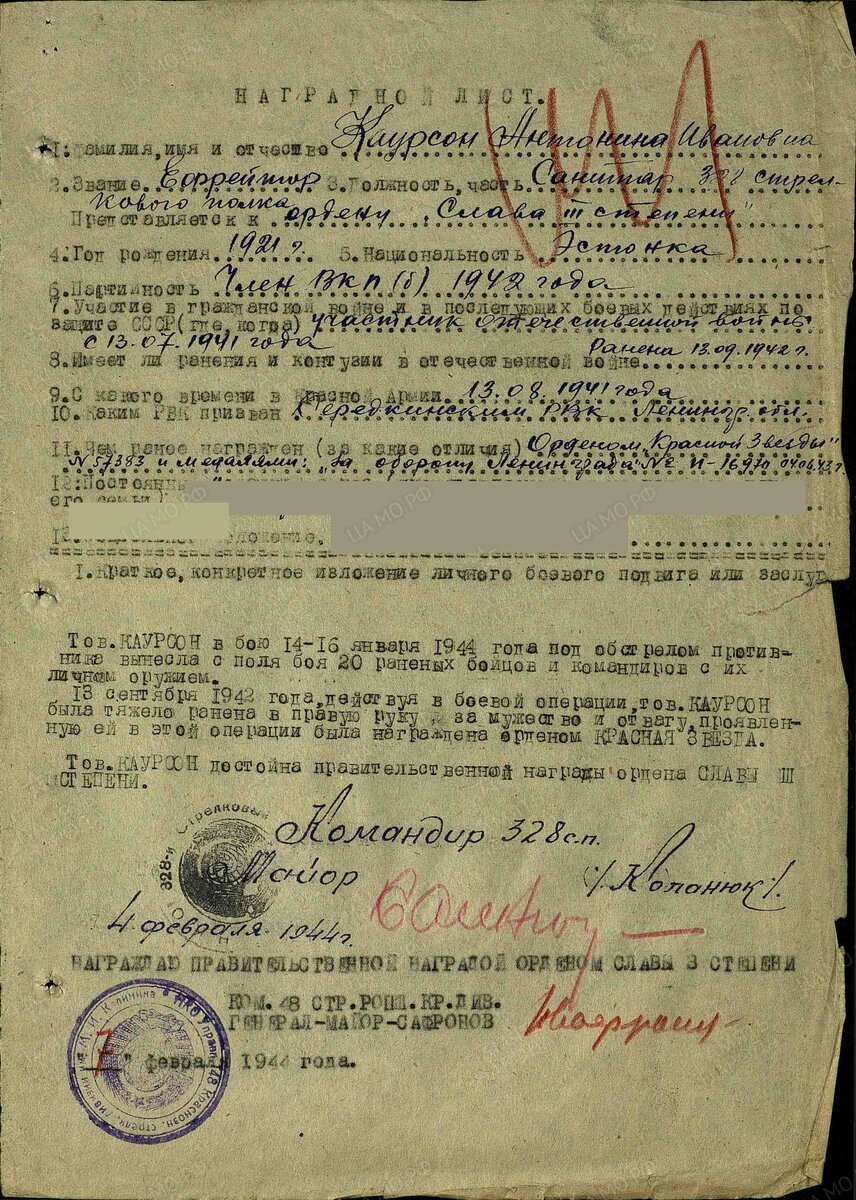 НАГРАДНОЙ ЛИСТ.
1.Фамилия,имя и отчество Каурсон Антонина Ивановна
2.Звание Ефрейтор 3.Должность,часть Санитар 328 стрел-
кового полка
Представляется к ордену „Слава III степени"
4.Год рождения 1921 г. 5.Национальность Эстонка
6.Партийность Член ВКП(б) 1942 года
7.Участие в гражданской войне и в последующих боевых действиях по
защите СССР(где,когда) участник отечественной войны
с 13.07.1941 года Ранена 13.09.1942 г.
8.Имеет ли ранения и контузии в отечественной войне
9.С какого времени в Красной Армии 13.08.1941 года
10.Каким РВК призван Середкинским РВК Ленингр. обл.
11.Чем ранее награжден (за какие отличия) Орденом „Красной Звезды"
№ 57383 и медалями: „За оборону Ленинграда"
12.Постоянны
его семьи
13.
I.Краткое,конкретное изложение личного боевого подвига или заслуг
Тов.КАУРСОН в бою 14-16 января 1944 года под обстрелом против-
ника вынесла с поля боя 20 раненых бойцов и командиров с их
личным оружием.
13 сентября 1942 года,действуя в боевой операции,тов.КАУРСОН
была тяжело ранена в правую руку , за мужество и отвагу,проявлен-
ную ей в этой операции была награждена орденом КРАСНАЯ ЗВЕЗДА.
Тов.КАУРСОН достойна правительственной награды ордена СЛАВЫ Ш
СТЕПЕНИ.
328-й Стрелковый
Командир 328 с.п.
Майор /Копанюк/.
4 февраля 1944г.
НАГРАЖДАЮ ПРАВИТЕЛЬСТВЕННОЙ НАГРАДОЙ ОРДЕНОМ СЛАВЫ 3 СТЕПЕНИ
КОМ.48 СТР.РОПШ.КР.ДИВ.
ГЕНЕРАЛ-МАЙОР-САФРОНОВ
7 " февраля 1944 года.
ЦАМО РФ